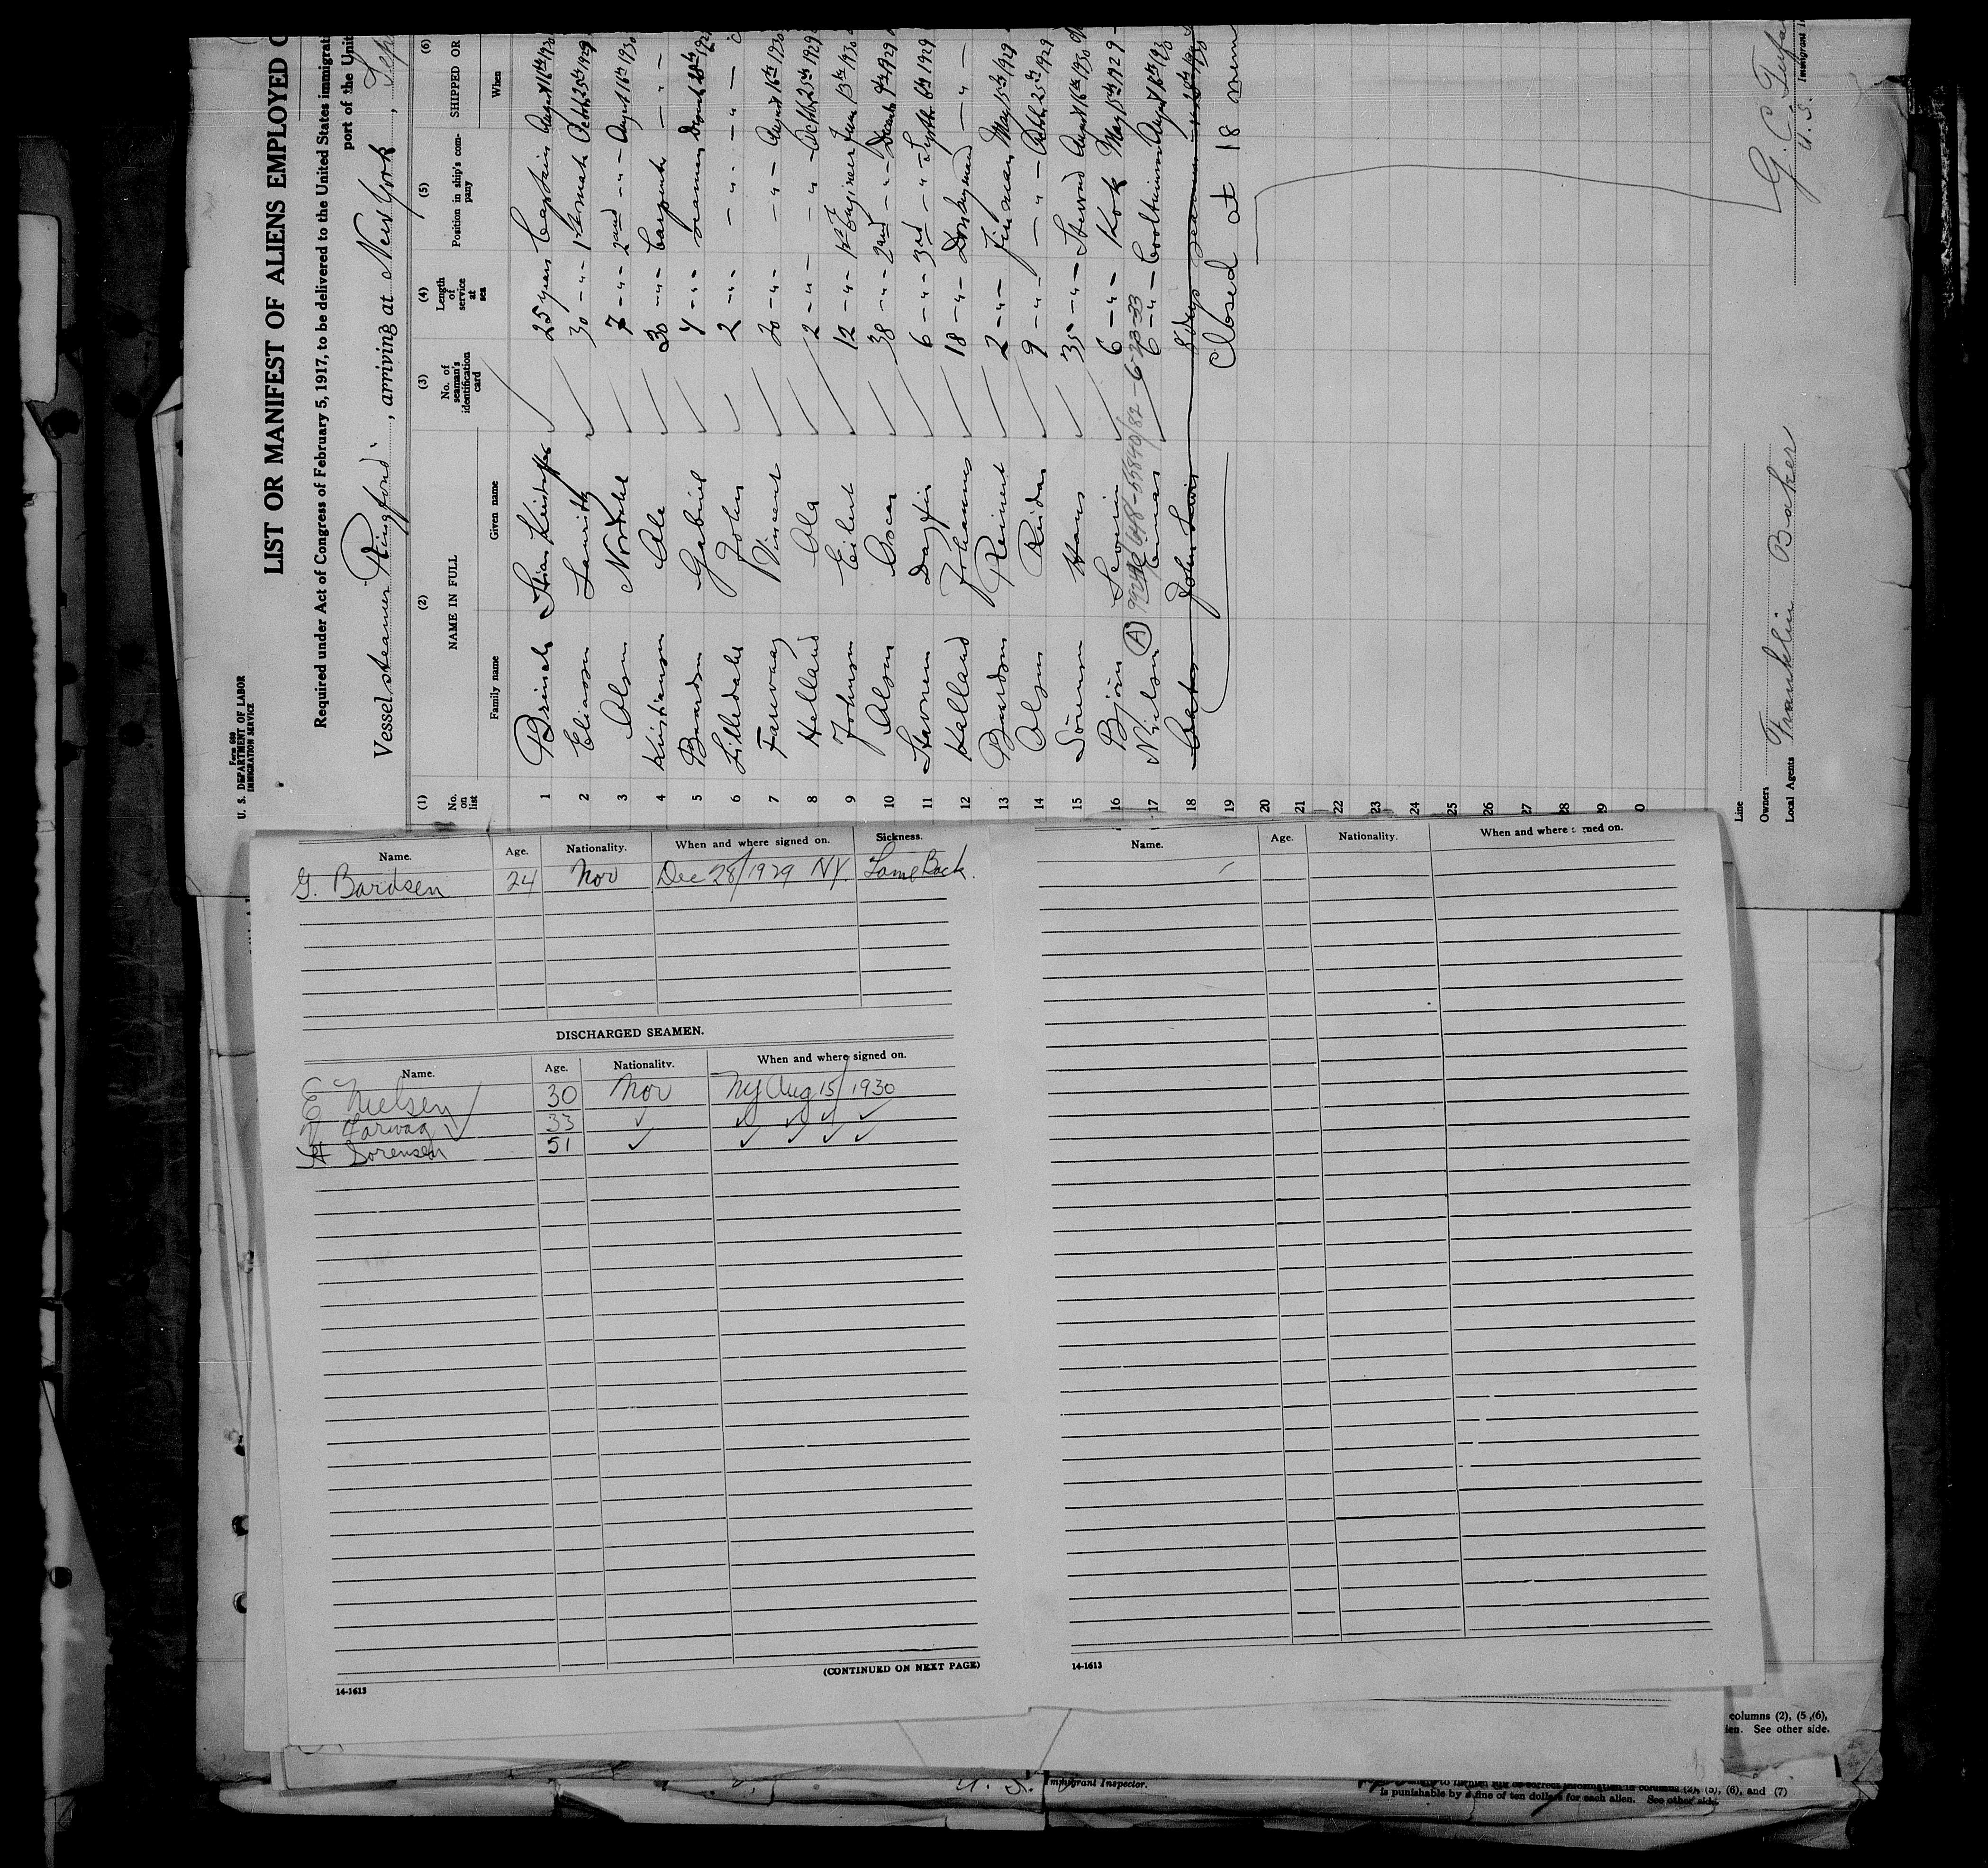 Form 680
U. S. DEPARTMENT OF LABOR
IMMIGRATION SERVICE
LIST OR MANIFEST OF ALIENS EMPLOYED
Required under Act of Congress of February 5, 1917, to be delivered to the United States immigrat
port of the Unit
Vessel steamer Ringfond, arriving at New York, Sep
(1) (2) (3) (4) (5) (6)
No. on list NAME IN FULL No. of seaman's identification card Length of service at sea Position in ship's company SHIPPED OR
Family name Given name When
1 Brinch Stian 25 years Captain August 16th 1930
2 Eliason Lauritz 30 - " - 1st mate Octbr 25th 1929
3 Olsen 7 - " - 2and - " - August 16th 1930
4 Kristiansen Ole 30 - " - Carpenter - " -
5 Baardsen Gabriel 4 - " - seaman Decemb 28th 192
6 Lilledahl John 2 - " - - " - - " -
7 Farvaag Vincent 20 - " - - " - August 16th 1930
8 Helland Ola 2 - " - - " - Octbr 25th 1929
9 Johnsen Eilert 12 - " - 1st Engineer June 13th 1930
10 Olsen Oscar 38 - " - 2and - " - Decemb 9th 1929
11 Dagfin 6 - " - 3rd - " - Septbr 6th 1929
12 Kalland Johannes 18 - " - Donkeyman - " -
13 Baardsen Reinert 2 - " - Fireman May 15th 1929
14 Olsen Reidar 9 - " - - " - Octbr 25th 1929
15 Sörensen Hans 35 - " - Steward August 16th 1930
16 Björn Severin 6 - " - Kok May 15th 1929
(A) 55840/82 - 6-23-33
17 Nielsen Einar 6 - " - August 16th 193
18 John Lewis 8 days seaman
19 Closed at 18 men
20
21
22
23
24
25
26
27
28
29
0
Line
Owners
Local Agents Franklin Baker
G. C.
U. S. Immigrant I
Name. Age. Nationality. When and where signed on. Sickness.
G. Bardsen 24 Nor Dec 28/1929 NY. Lame Back.
DISCHARGED SEAMEN.
Name. Age. Nationality. When and where signed on.
E Nielsen 30 Nor NY Aug 15/1930
V Farvaag 33 ✓ ✓ ✓ ✓ ✓
H Sorensen 51 ✓ ✓ ✓ ✓ ✓
(CONTINUED ON NEXT PAGE)
14-1613
Name. Age. Nationality. When and where signed on.
14-1613
columns (2), (5, (6),
ien. See other side.
Immigrant Inspector.
correct information in columns (2), (5), (6), and (7)
is punishable by a fine of ten dollars for each alien. See other side.